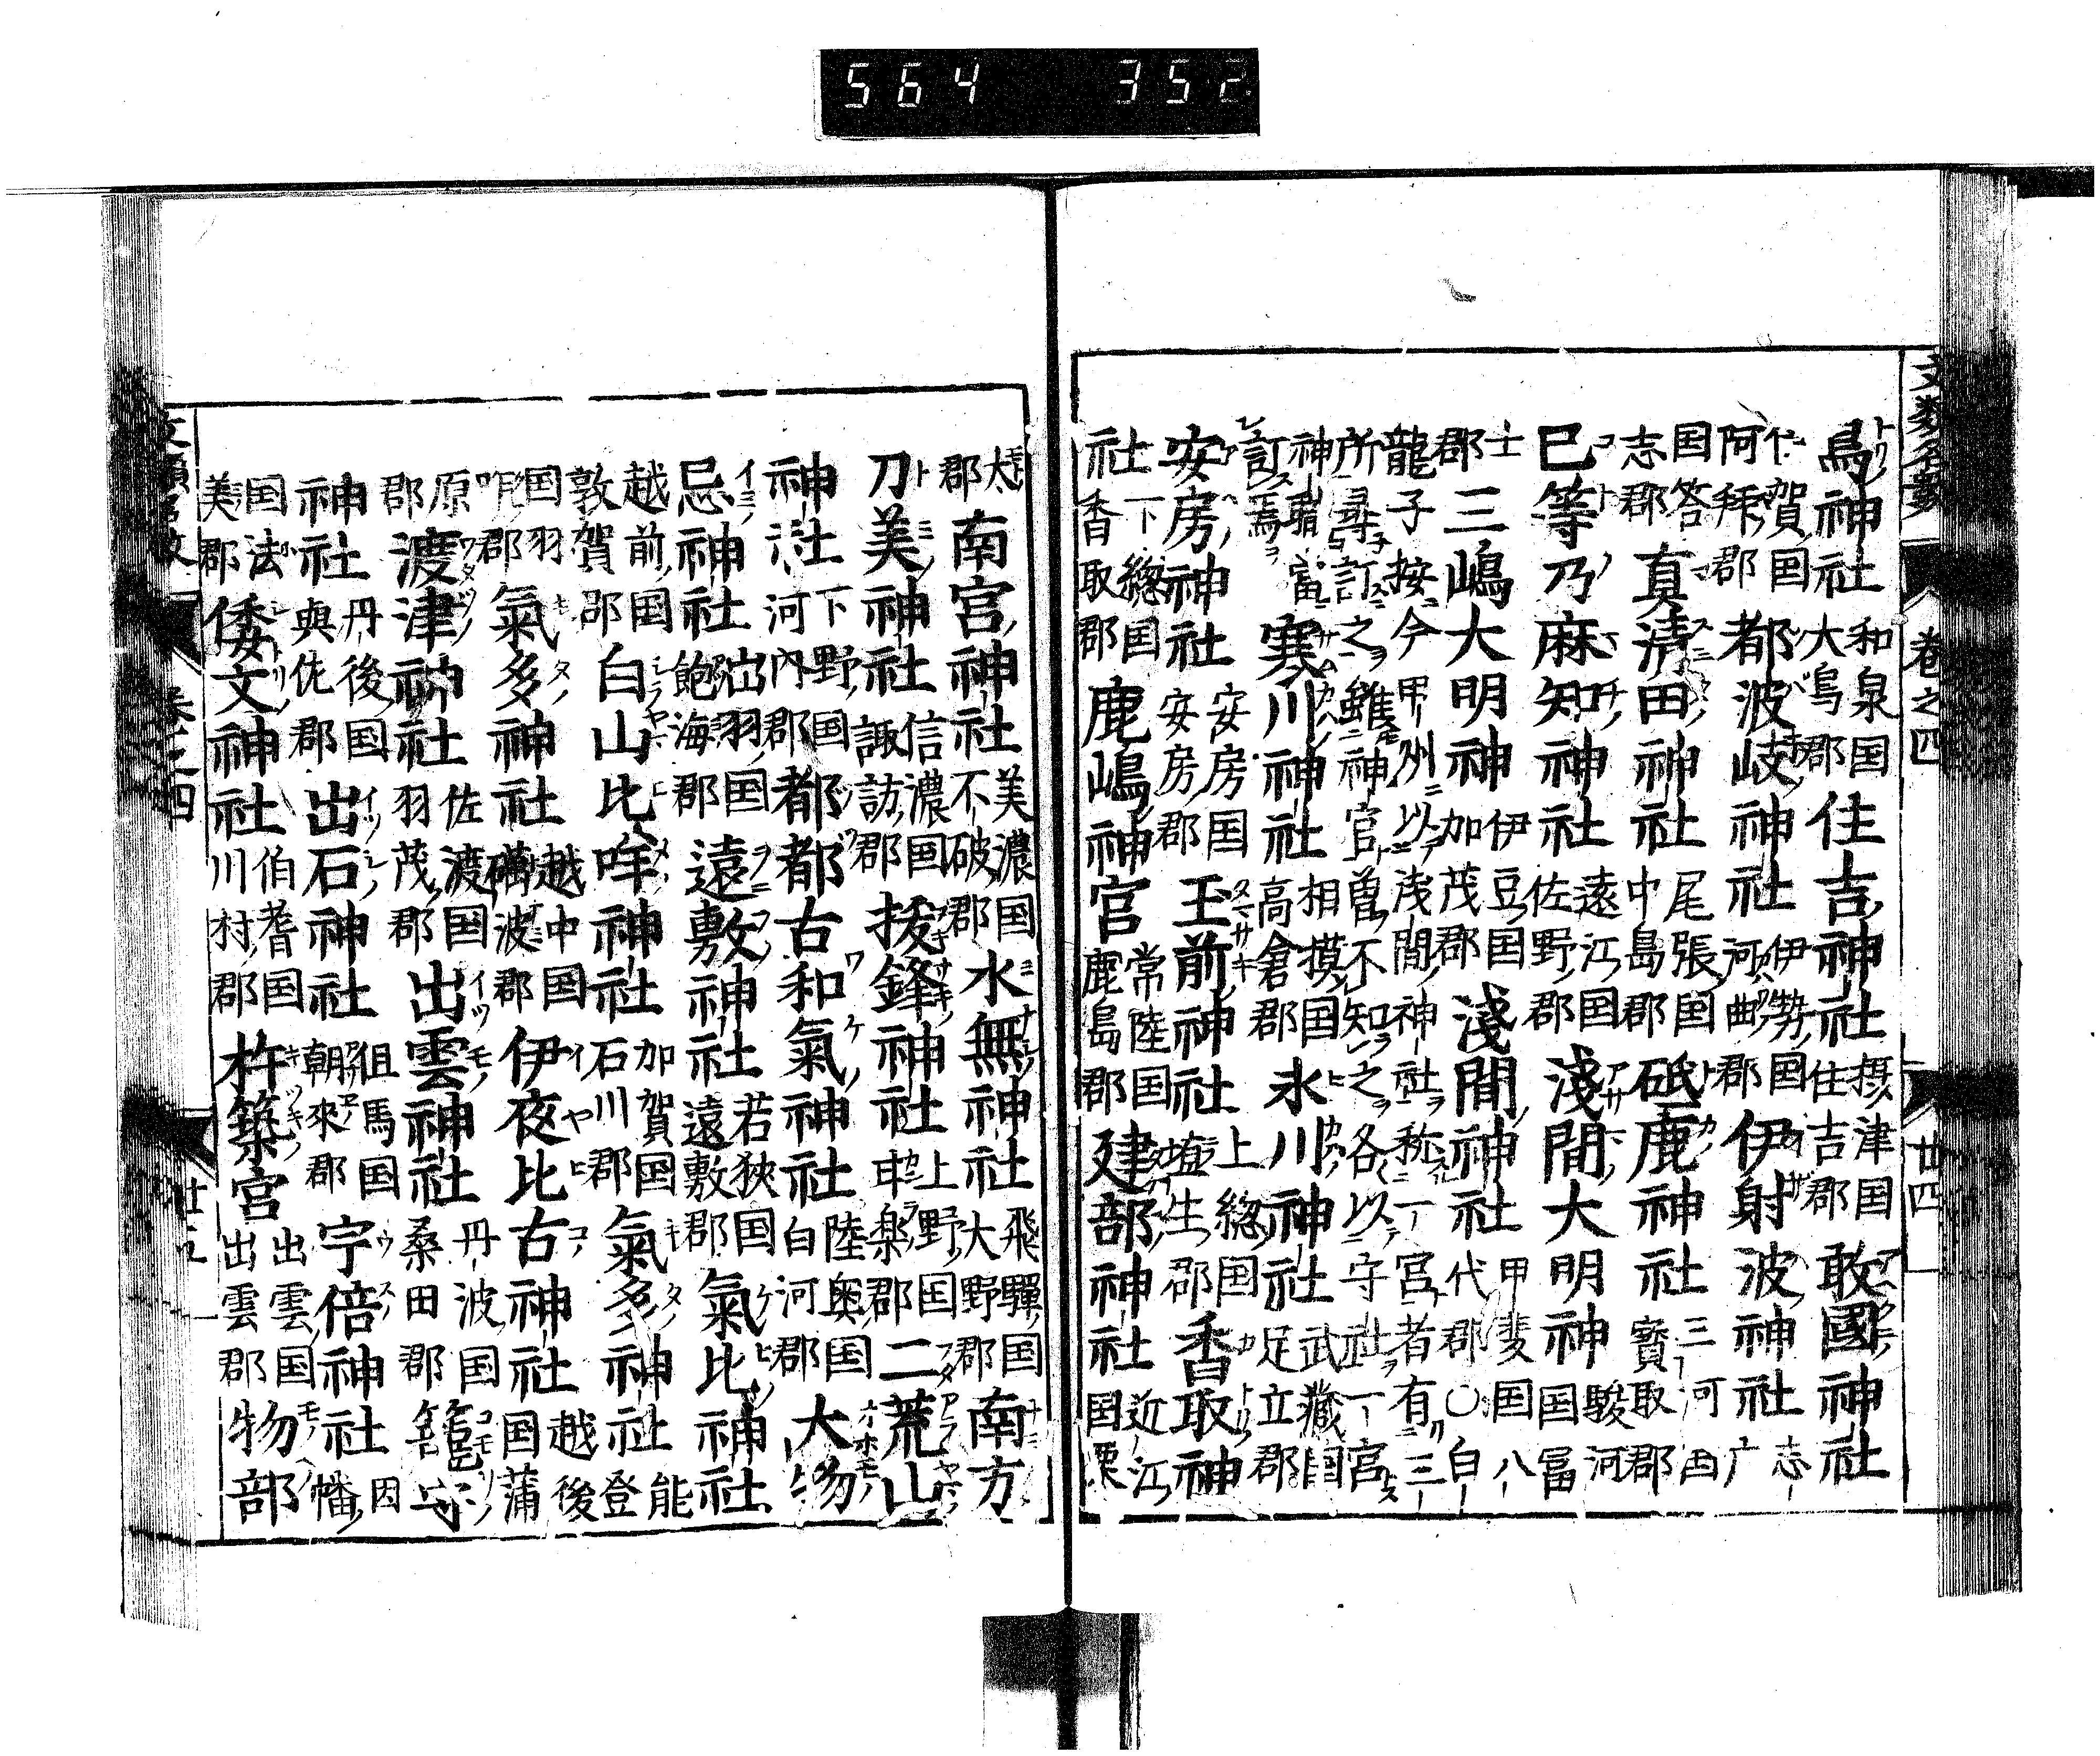 564 352
卷之四 廿四
鳥神社 和泉国大鳥郡 住吉神社 摂津国住吉郡 敢國神社
伊賀国阿拜郡 都波岐神社 伊勢国河曲郡 伊射波神社 志广
国答志郡 真清田神社 尾張国中島郡 砥鹿神社 三河国寳飫郡
巳等乃麻知神社 遠江国佐野郡 淺間大明神 駿河国冨
士郡 三嶋大明神 伊豆国加茂郡 淺間神社 甲斐国八代郡 ○白
龍子按今甲州以浅間神社称一宮者有三
所尋訂之雖神官曽不知之各以守社一宮
神職當訂焉 寒川神社 相摸国高倉郡 氷川神社 武藏国足立郡
安房神社 安房国安房郡 玉前神社 上総国埴生郡 香取神
社 下總国香取郡 鹿嶋神宮 常陸国鹿島郡 建部神社 近江国栗
太郡 南宮神社 美濃国不破郡 水無神社 飛驒国大野郡 南方
刀美神社 信濃国諏訪郡 拔鋒神社 上野国甘楽郡 二荒山
神社 下野国河內郡 都都古和氣神社 陸奥国白河郡 大物
忌神社 出羽国飽海郡 遠敷神社 若狹国遠敷郡 氣比神社
越前国敦賀郡 白山比咩神社 加賀国石川郡 氣多神社 能登
国羽咋郡 氣多神社 越中国礪波郡 伊夜比古神社 越後国蒲
原郡 渡津神社 佐渡国羽茂郡 出雲神社 丹波国桑田郡 籠守
神社 丹後国與佐郡 出石神社 但馬国朝來郡 宇倍神社 因幡
国法美郡 倭文神社 伯耆国川村郡 杵築宮 出雲国出雲郡 物部